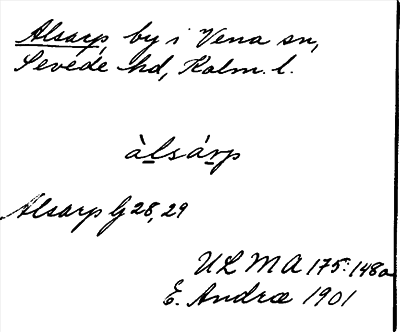 Alsarp, by i Vena sn,
Sevede hd, Kalm. l.
àlsárp
Alsarp G 28, 29
ULMA 175:148a
E. Andræ 1901